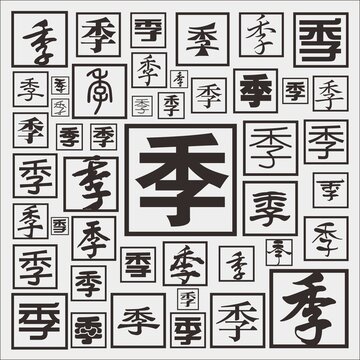 季 季 季 季 季 季
季 季
季 季 季 季 季 季 季 季 季 季
季 季 季 季 季 季
季 季 季 季
季 季 季 季
季 季 季 季 季 季
季 季 季 季 季 季 季